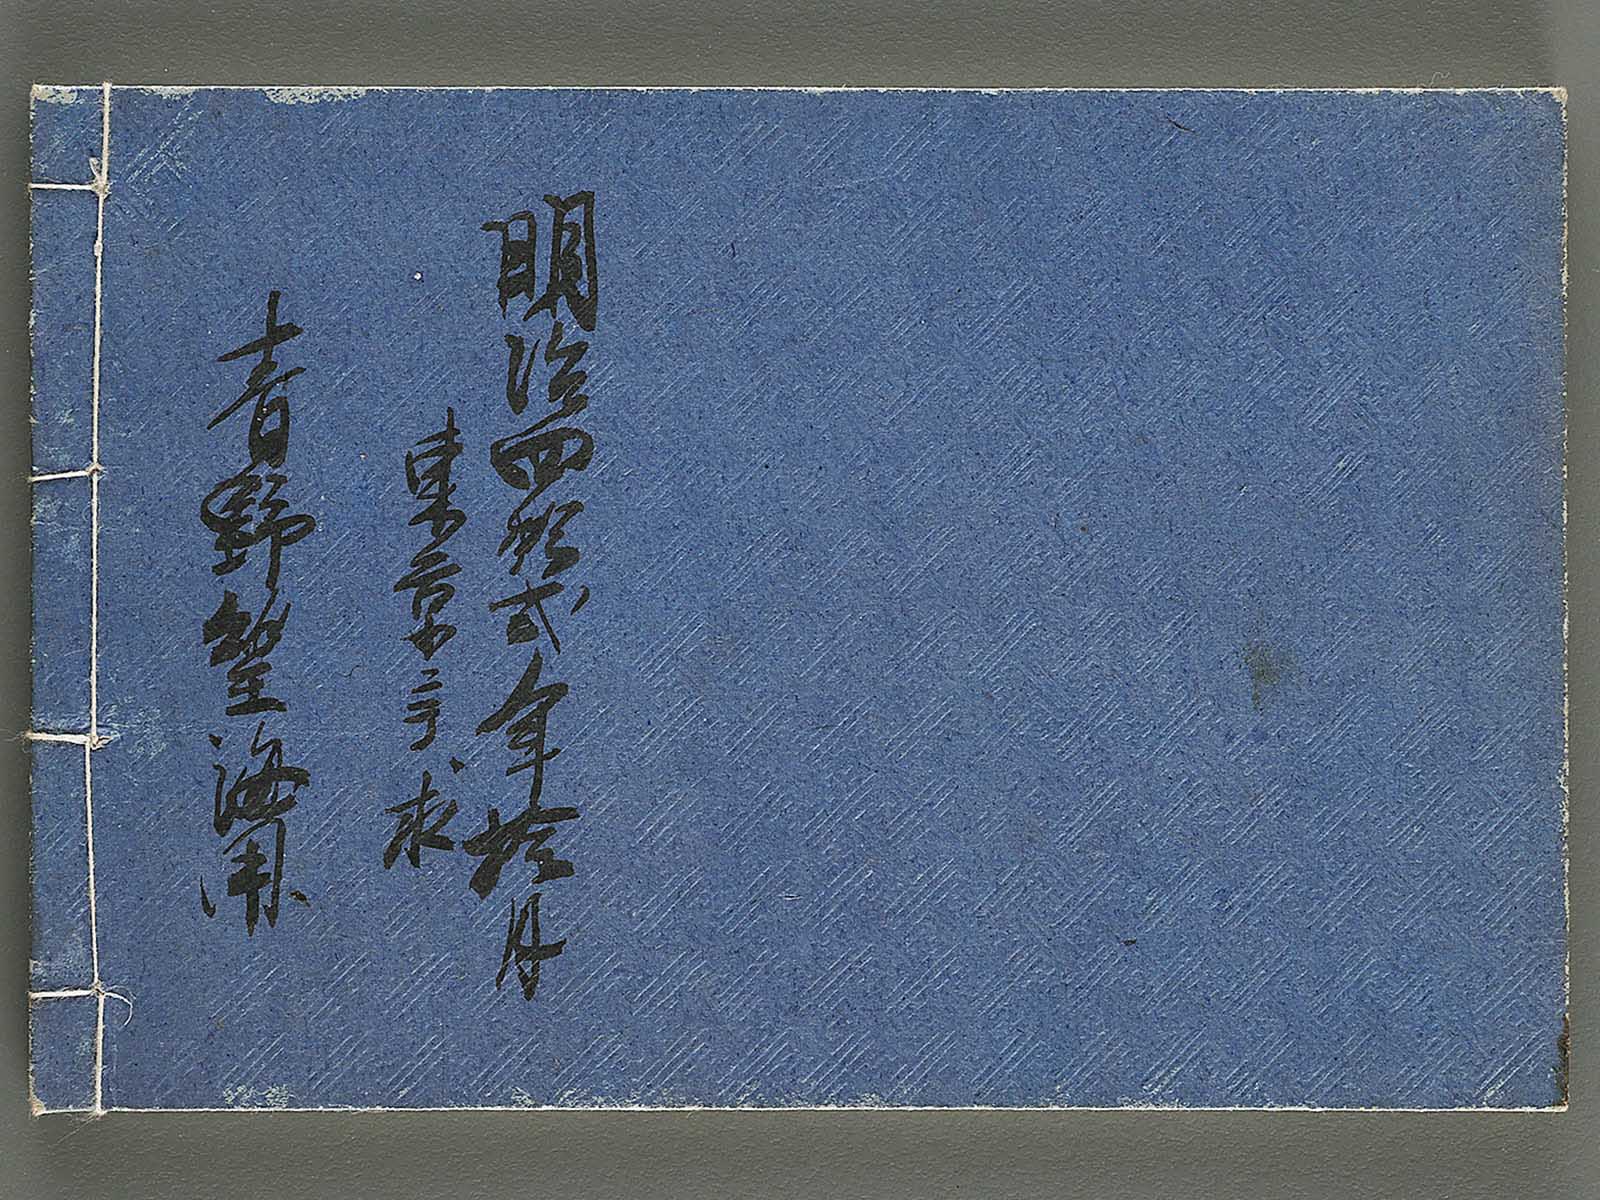 明治四拾弐年拾月
東京ニテ求
青野 海